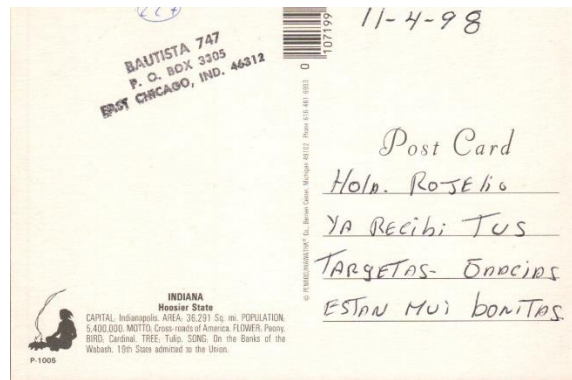 11-4-98
BAUTISTA 747
P. O. BOX 3305
EAST CHICAGO, IND. 46312
107199
0
Post Card
Hola. Rojelio
Ya Recibi Tus
Targetas- Gracias
Estan Mui bonitas.
INDIANA
Hoosier State
CAPITAL, Indianapolis. AREA: 36,291 Sq. mi. POPULATION,
5,400,000. MOTTO, Cross-roads of America. FLOWER, Peony.
BIRD, Cardinal. TREE; Tulip. SONG: On the Banks of the
Wabash. 19th State admitted to the Union.
P-1005